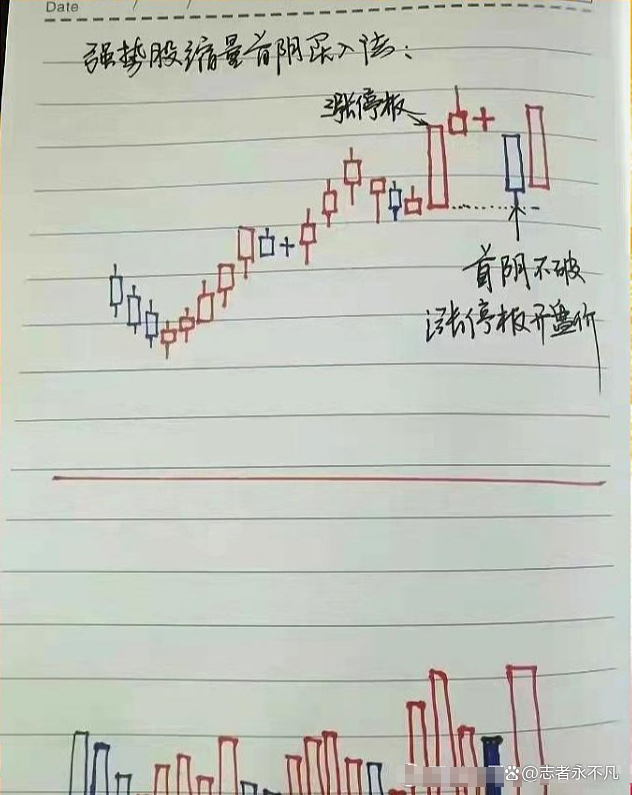 Date / /
强势股缩量首阴买入法：
涨停板
首阴不破
涨停板开盘价
@志者永不凡